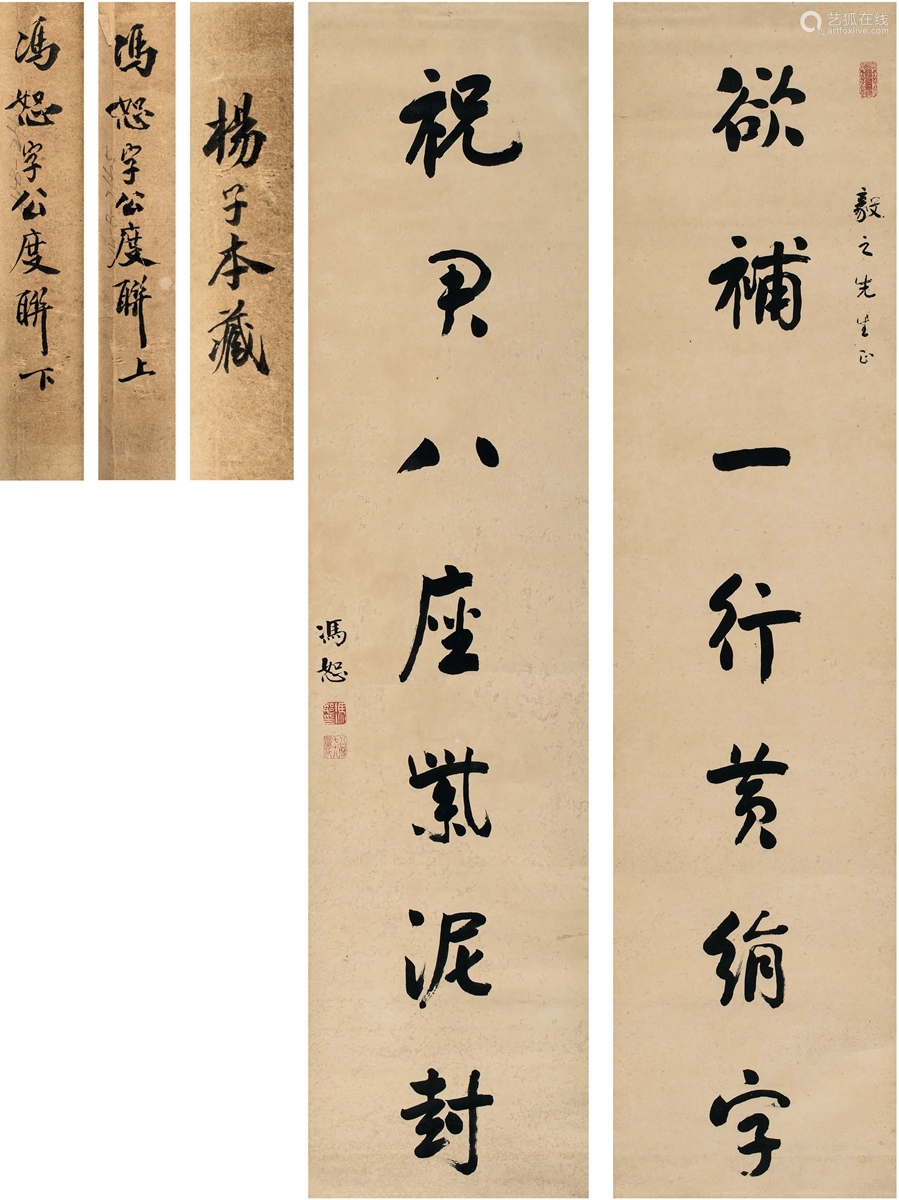 欲補一行黄絹字
毅之先生正
祝君八座紫泥封
馮恕
楊子本藏
馮恕字公度聯上
馮恕字公度聯下
艺狐在线
artfoxlive.com